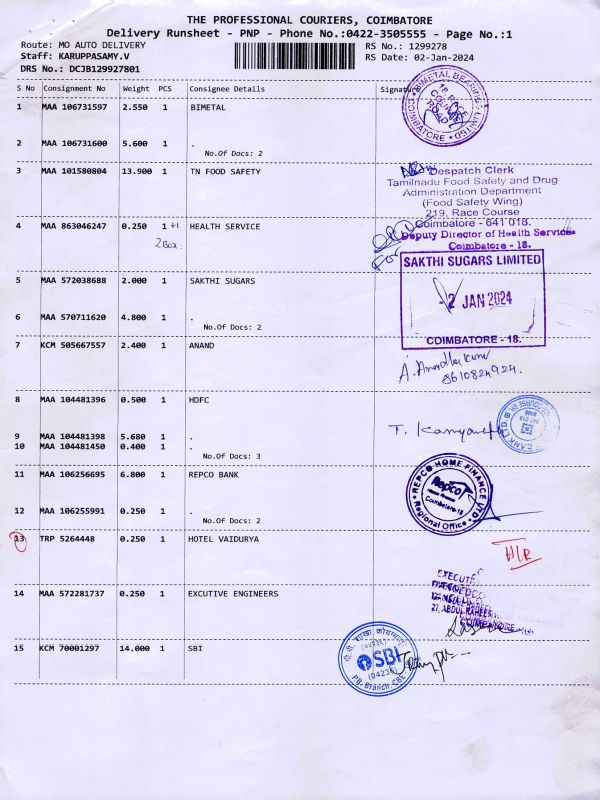 THE PROFESSIONAL COURIERS, COIMBATORE
Delivery Runsheet - PNP - Phone No.:0422-3505555 - Page No.:1
Route: MO AUTO DELIVERY RS No.: 1299278
Staff: KARUPPASAMY.V RS Date: 02-Jan-2024
DRS No.: DCJB129927801
S No Consignment No Weight PCS Consignee Details Signature
1 MAA 106731597 2.550 1 BIMETAL
BIMETAL BEARINGS LIMITED
COIMBATORE
2 MAA 106731600 5.600 1 .
No.Of Docs: 2
3 MAA 101580804 13.900 1 TN FOOD SAFETY
Despatch Clerk
Tamilnadu Food Safety and Drug
Administration Department
(Food Safety Wing)
219, Race Course
Coimbatore - 641 018.
4 MAA 863046247 0.250 1 +1 HEALTH SERVICE
2 Box
For
Deputy Director of Health Services
Coimbatore - 18.
5 MAA 572038688 2.000 1 SAKTHI SUGARS
SAKTHI SUGARS LIMITED
2 JAN 2024
COIMBATORE - 18.
6 MAA 570711620 4.800 1 .
No.Of Docs: 2
7 KCM 505667557 2.400 1 ANAND
8610824924.
8 MAA 104481396 0.500 1 HDFC
9 MAA 104481398 5.680 1 .
10 MAA 104481450 0.400 1 .
No.Of Docs: 3
11 MAA 106256695 6.800 1 REPCO BANK
REPCO HOME FINANCE LTD
Repco
Coimbatore-18
Regional Office
12 MAA 106255991 0.250 1 .
No.Of Docs: 2
13 TRP 5264448 0.250 1 HOTEL VAIDURYA
14 MAA 572281737 0.250 1 EXCUTIVE ENGINEERS
15 KCM 70001297 14.000 1 SBI
SBI
(04236)
PB. Branch, CBE